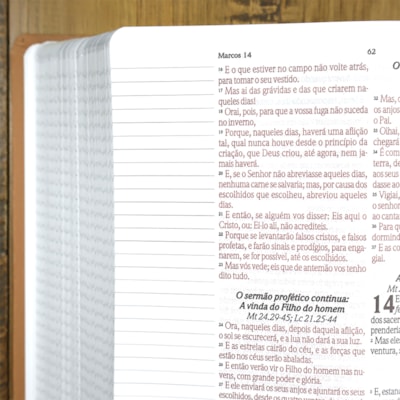 Marcos 14
62
16 E o que estiver no campo não volte atrás,
para tomar o seu vestido.
17 Mas ai das grávidas e das que criarem na-
queles dias!
18 Orai, pois, para que a vossa fuga não suceda
no inverno,
19 Porque, naqueles dias, haverá uma aflição
tal, qual nunca houve desde o princípio da
criação, que Deus criou, até agora, nem ja-
mais haverá.
20 E, se o Senhor não abreviasse aqueles dias,
nenhuma carne se salvaria; mas, por causa dos
escolhidos que escolheu, abreviou aqueles
dias.
21 E então, se alguém vos disser: Eis aqui o
Cristo, ou: Ei-lo ali, não acrediteis.
22 Porque se levantarão falsos cristos, e falsos
profetas, e farão sinais e prodígios, para enga-
narem, se for possível, até os escolhidos.
23 Mas vós vede; eis que de antemão vos tenho
dito tudo.
O sermão profético continua:
A vinda do Filho do homem
Mt 24.29-45; Lc 21.25-44
24 Ora, naqueles dias, depois daquela aflição,
o sol se escurecerá, e a lua não dará a sua luz.
25 E as estrelas cairão do céu, e as forças que
estão nos céus serão abaladas.
26 E então verão vir o Filho do homem nas nu-
vens, com grande poder e glória.
27 E ele enviará os seus anjos e ajuntará os seus
escolhidos, desde os quatro
O
32 Mas, d
os anjos
o Pai.
33 Olhai,
chegará
34 É com
terra, de
aos seus
dasse
35 Vigiai,
o senhor
ao cantar
36 Para q
dormind
37 E as co
giai.
A
Mt 2
14 E
dos sacer
prenderia
2 Mas ele
ventura,
3 E, estan